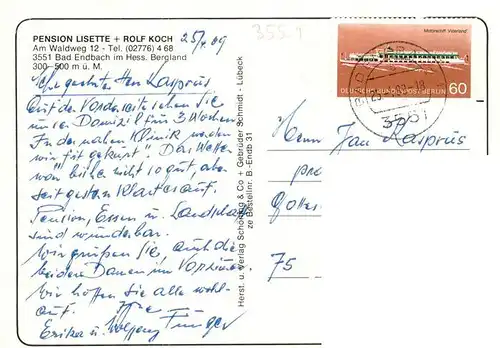 PENSION LISETTE + ROLF KOCH
Am Waldweg 12 - Tel. (02776) 4 68
3551 Bad Endbach im Hess. Bergland
300-500 m ü. M.
355.1
Motorschiff
DEUTSCHE BUNDESPOST BERLIN 60
3551
Auf der Vorderseite sehen Sie
unser Domizil für 3 Wochen.
In der nahen Klinik werden
wir "fit gekurt". Das Wetter
war bisher nicht so gut, aber
seit gestern klart es auf.
Pension, Essen u. Landschaft
sind wunderbar.
Wir grüßen Sie, auch die
beiden Damen im
Wir hoffen Sie alle wohl-
auf. Ihre
Erika u. Wolfgang
Herst. u. Verlag Schöning & Co + Gebrüder Schmidt - Lübeck
ze Bestellnr. B.-Endb 31
Herrn Jan Rasprus
75